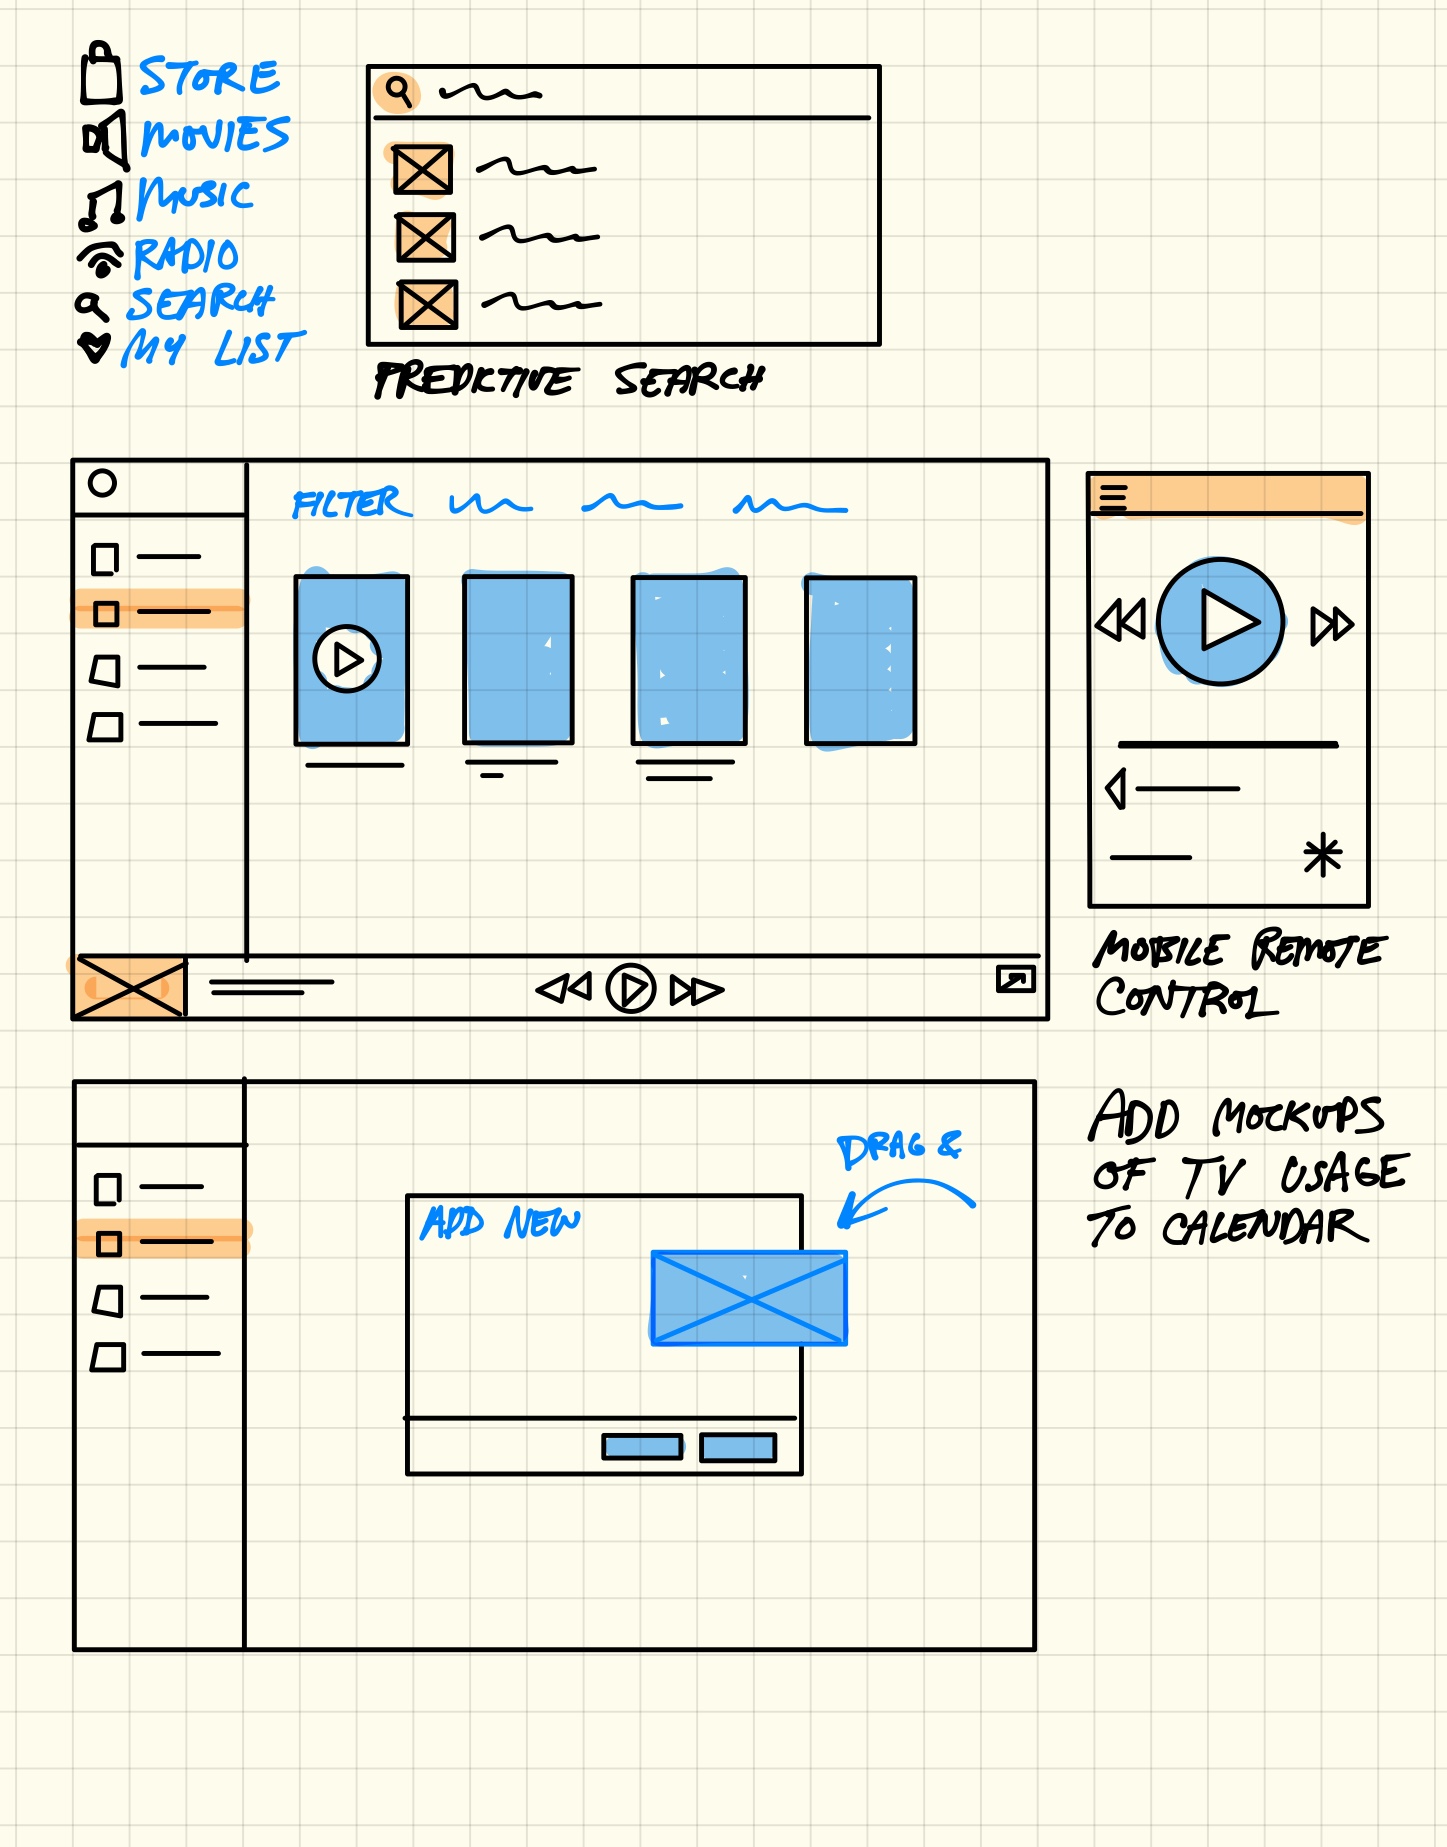 STORE
MOVIES
MUSIC
RADIO
SEARCH
MY LIST
PREDICTIVE SEARCH
FILTER
MOBILE REMOTE
CONTROL
DRAG &
ADD NEW
ADD MOCKUPS
OF TV USAGE
TO CALENDAR